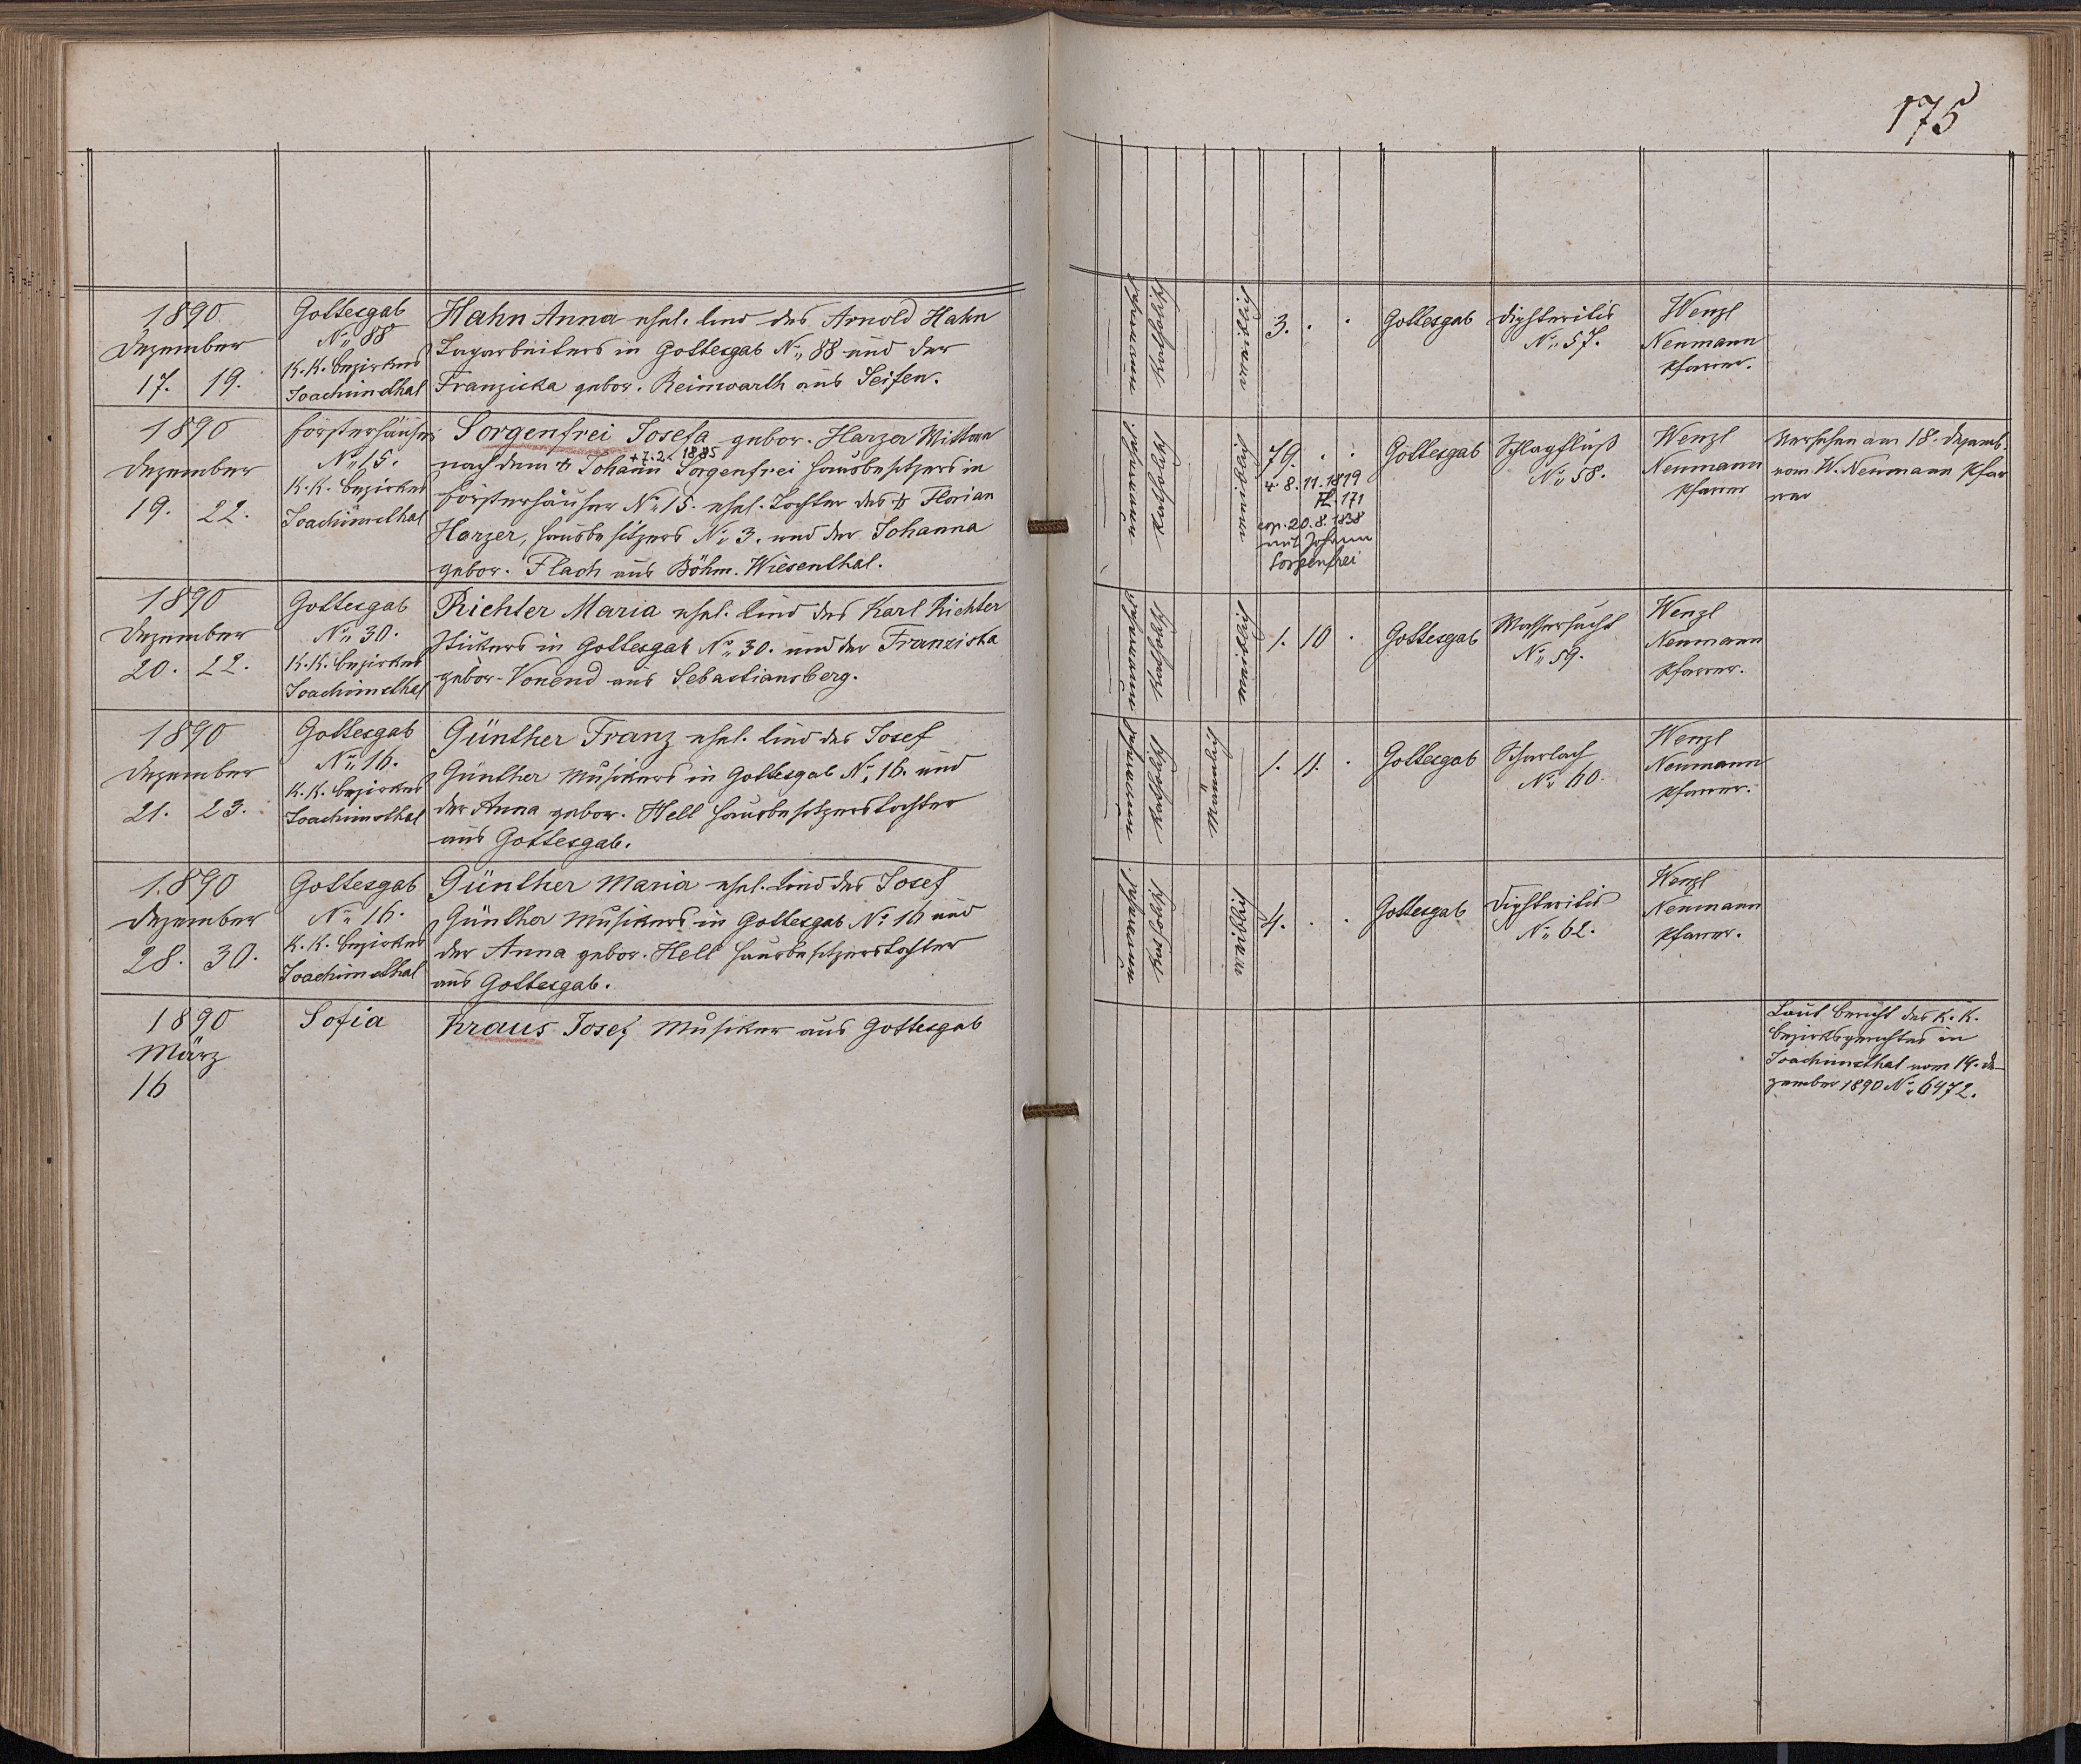 175
1890
Dezember
17. 19.
Gottesgab
No 88
K.K. Bezirkes
Joachimsthal
Hahn Anna ehel. Kind des Arnold Hahn
Tagarbeiters in Gottesgab No 88 und der
Franziska gebor. Reinwarth aus Seifen.
Pfarrmann
Katholisch
weiblich
3. . .
Gottesgab
Diphteritis
No 57.
Wenzl
Neumann
Pfarrer.
1890
Dezember
19. 22.
Försterhäuser
No 15.
K.K. Bezirkes
Joachimsthal
Sorgenfrei Josefa gebor. Harzer Wittwe
+ 7.2. 1885
nach dem + Johann Sorgenfrei Hausbesitzers in
Försterhäuser No 15. ehel. Tochter des + Florian
Harzer, Hausbesitzers No 3. und der Johanna
gebor. Flach aus Böhm. Wiesenthal.
Katholisch
weiblich
79. . .
* 8.11.1819
171
cop. 20.8.1838
mit Johann
Sorgenfrei
Gottesgab
Schlagfluß
No 58.
Wenzl
Neumann
Pfarrer
Versehen am 18. Dezemb.
vom W. Neumann Pfar
rer
1890
Dezember
20. 22.
Gottesgab
No 30.
K.K. Bezirkes
Joachimsthal
Richter Maria ehel. Kind des Karl Richter
in Gottesgab No 30. und der Franziska
gebor. Vonend aus Sebastiansberg.
Katholisch
weiblich
1. 10 .
Gottesgab
Wassersucht
No 59.
Wenzl
Neumann
Pfarrer.
1890
Dezember
21. 23.
Gottesgab
No 16.
K.K. Bezirkes
Joachimsthal
Günther Franz ehel. Kind des Josef
Günther Musikers in Gottesgab No 16. und
der Anna gebor. Hell Hausbesitzerstochter
aus Gottesgab.
Katholisch
Männlich
1. 11. .
Gottesgab
Scharlach
No 60.
Wenzl
Neumann
Pfarrer.
1890
Dezember
28. 30.
Gottesgab
No 16.
K.K. Bezirkes
Joachimsthal
Günther Maria ehel. Kind des Josef
Günther Musikers in Gottesgab No 16 und
der Anna gebor. Hell Hausbesitzerstochter
aus Gottesgab.
Katholisch
weiblich
4. . .
Gottesgab
Diphteritis
No 62.
Wenzl
Neumann
Pfarrer.
1890
März
16
Sofia
Kraus Josef Musiker aus Gottesgab
Laut Bericht des K.K.
Bezirksgerichtes in
Joachimsthal vom 14. De-
zember 1890 No 6472.